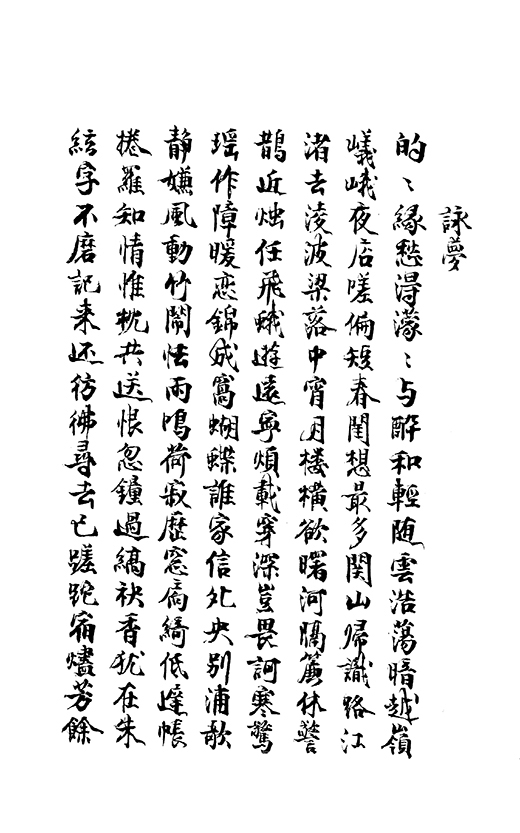 詠夢
的〻緣愁得濛〻与醉和輕随雲浩蕩暗越嶺
巇峨夜店嗟偏短春閨想最多関山帰識路江
渚去淩波梁落中宵月楼橫欲曙河隔簾休警
鵲近烛任飛蛾遊遠寧煩載穿深豈畏訶寒驚
瑶作障暖恋錦成窩蝴蝶誰家信夗央别浦歌
静嫌風動竹鬧怯雨鳴荷寂歷窓扃綺低迷帳
捲羅知情惟枕共送恨忽鐘過縞袂香犹在朱
絃字不磨記来还彷彿尋去已蹉跎宿燼芳餘